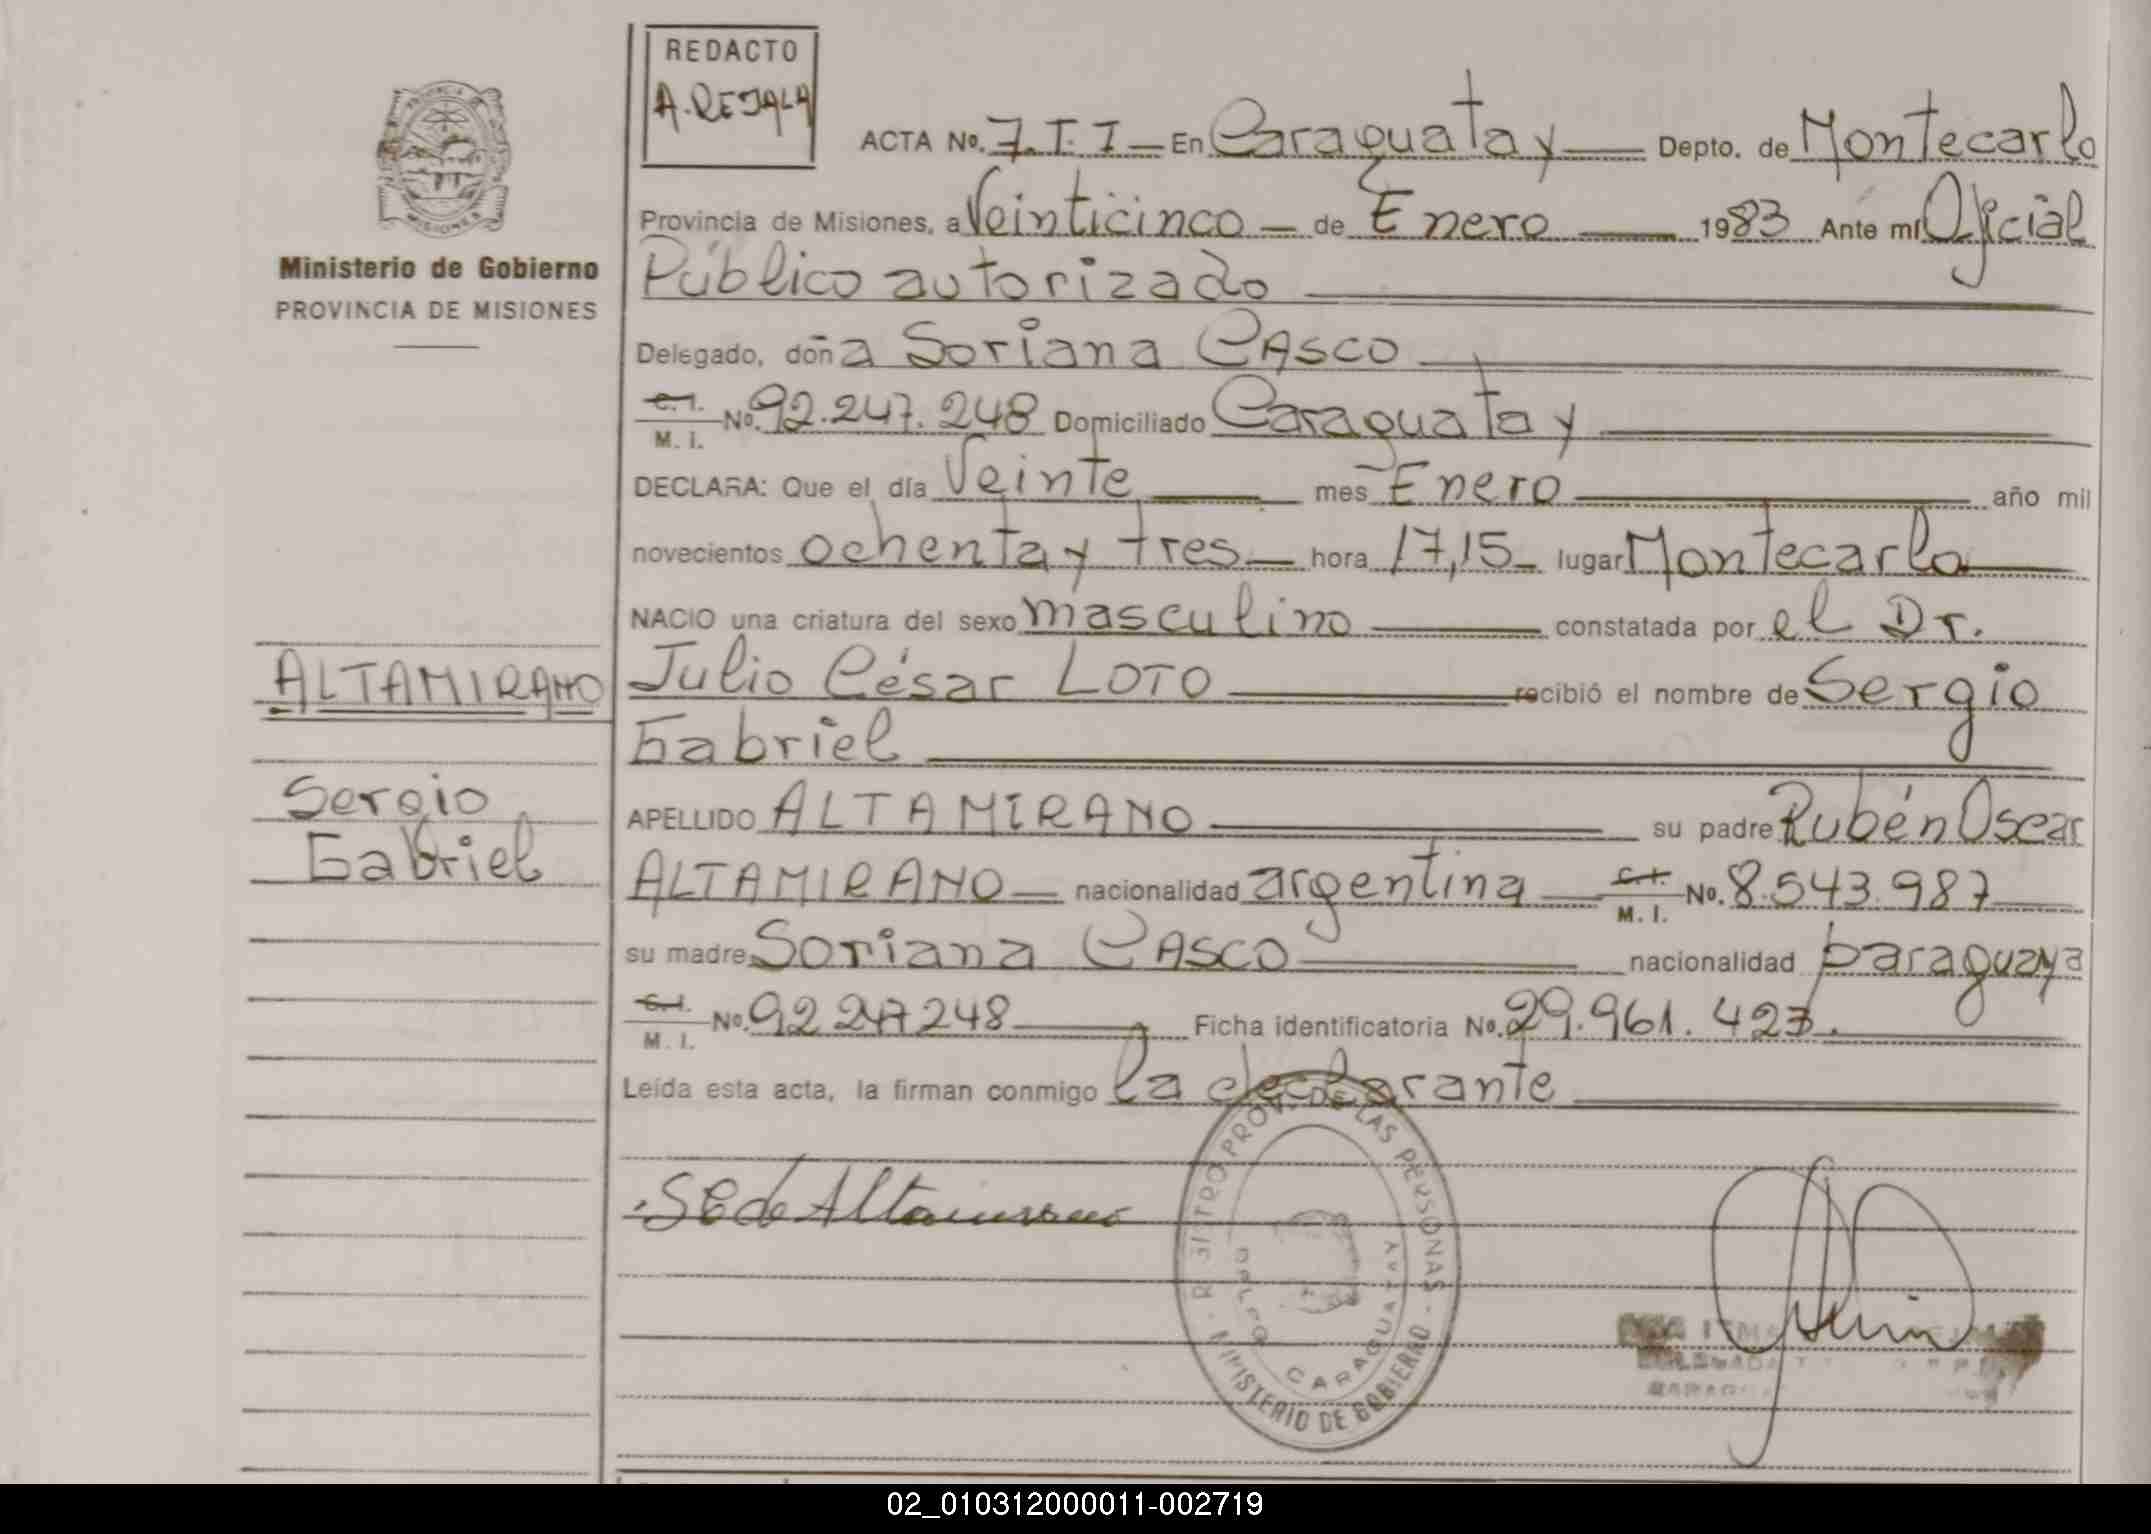 REDACTO
A. REJALA
ACTA No. 7. T. I — En Caraguatay — Depto. de Montecarlo
Provincia de Misiones, a Veinticinco — de Enero — 1983 Ante mí Oficial
Público autorizado
Delegado, doña Soriana CASCO
C.I. M. I. No. 92.247.248 Domiciliado Caraguatay
DECLARA: Que el día Veinte — mes Enero — año mil
novecientos ochenta y tres — hora 17,15 — lugar Montecarlo
NACIO una criatura del sexo masculino — constatada por el Dr.
Julio César LOTO — recibió el nombre de Sergio
Gabriel
APELLIDO ALTAMIRANO — su padre Rubén Oscar
ALTAMIRANO — nacionalidad argentina — C.I. M. I. No. 8.543.987
su madre Soriana CASCO — nacionalidad paraguaya
C.I. M. I. No. 92 247 248 — Ficha identificatoria No. 29.961.423.
Leída esta acta, la firman conmigo la declarante
SC de Altamirano
PROVINCIA DE
MISIONES
Ministerio de Gobierno
PROVINCIA DE MISIONES
ALTAMIRANO
Sergio
Gabriel
REGISTRO PROV. DE LAS PERSONAS
CARAGUATAY
MINISTERIO DE GOBIERNO
02_010312000011-002719